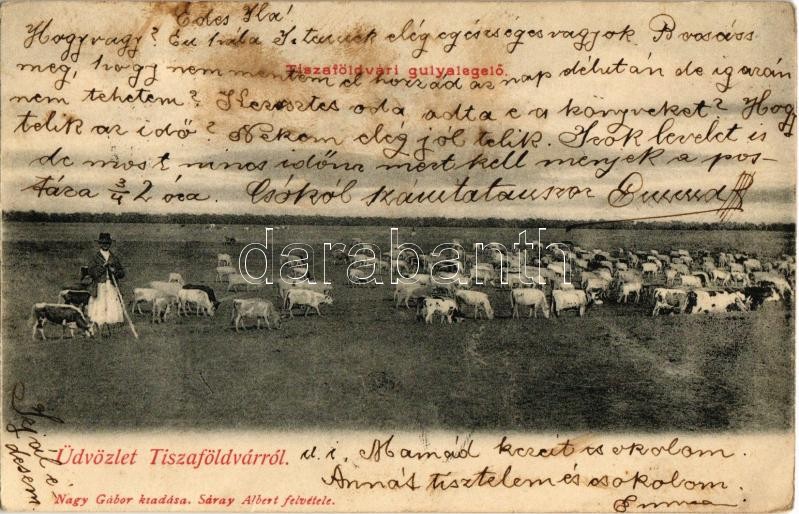 Édes Ila!
Hogy vagy? Én hála Istennek elég egészséges vagyok. Bocsáss
meg, hogy nem mentem el hozzád az nap délután de igazán
Tiszaföldvári gulyalegelő.
nem tehetem? Keresztes oda adta e a könyveket? Hogy
telik az idő? Nekem elég jól telik. Irok levelet is
de most nincs időm mert kell menjek a pos-
tára 3/4 2 óra. Csókol számtalanszor Emma
darabanth
Írjál édesem
Üdvözlet Tiszaföldvárról.
u. i. Mamád kezeit csokolom.
Annás tisztelem és csokolom.
Nagy Gábor kiadása. Sáray Albert felvétele.
Emma